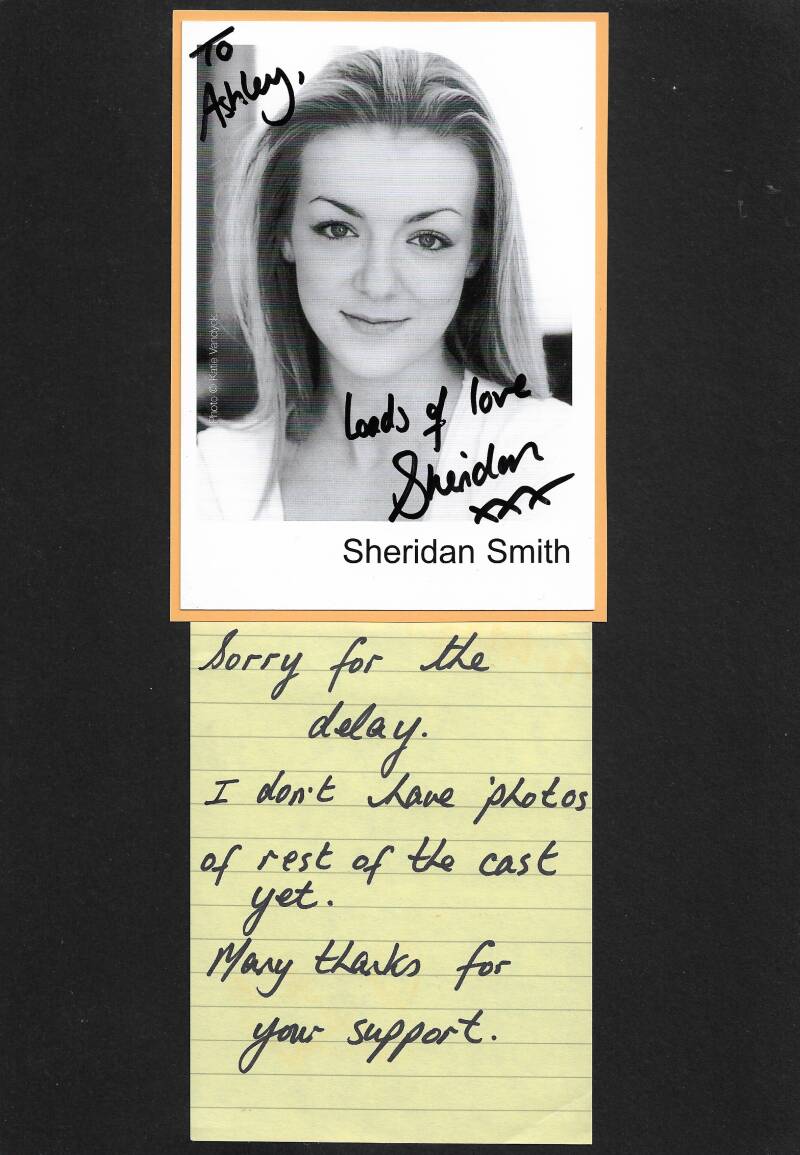 To
Ashley,
Photo © Katie Vandyck
Loads of love
Sheridan
xxx
Sheridan Smith
Sorry for the
delay.
I don't have photos
of rest of the cast
yet.
Many thanks for
your support.